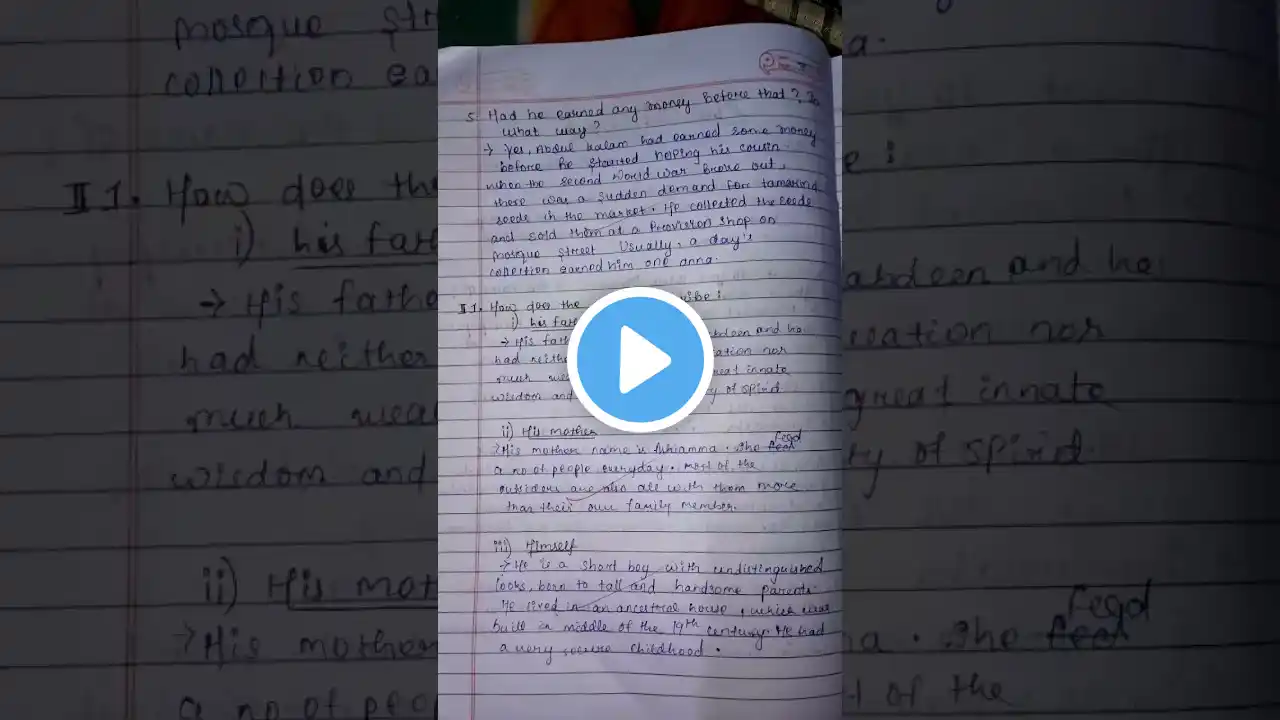 5. Had he earned any money before that? In
what way?
→ Yes, Abdul Kalam had earned some money
before he started hoping his cousin.
when the second world war broke out,
there was a sudden demand for tamarind
seeds in the market. He collected the seeds
and sold them at a Provision shop on
mosque street Usually, a day's
collection earned him one anna.
II 1. How does the
i) his fath
→ His fath
abdeen and he
had neithe
cation nor
much wea
great innate
wisdom and
ty of spirit
ii) His mother
→ His mother name is Ashiamma. She feed
a no of people everyday. most of the
outsiders ate with them more
than their own family member.
iii) Himself
→ He is a short boy with undistinguished
looks, born to tall and handsome parents.
He lived in an ancestral house, which was
built in middle of the 19th century. He had
a very secure childhood.